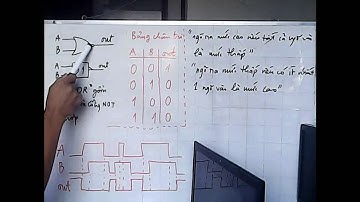 A
B
out
A
B
out
"OR" gồm
cổng NOT
Bảng chân trị
A B out
0 0 1
0 1 0
1 0 0
1 1 0
"ngõ ra mức cao nếu tất cả ngõ vào
là mức thấp"
"ngõ ra mức thấp nếu có ít nhất
1 ngõ vào là mức cao"
A
B
out